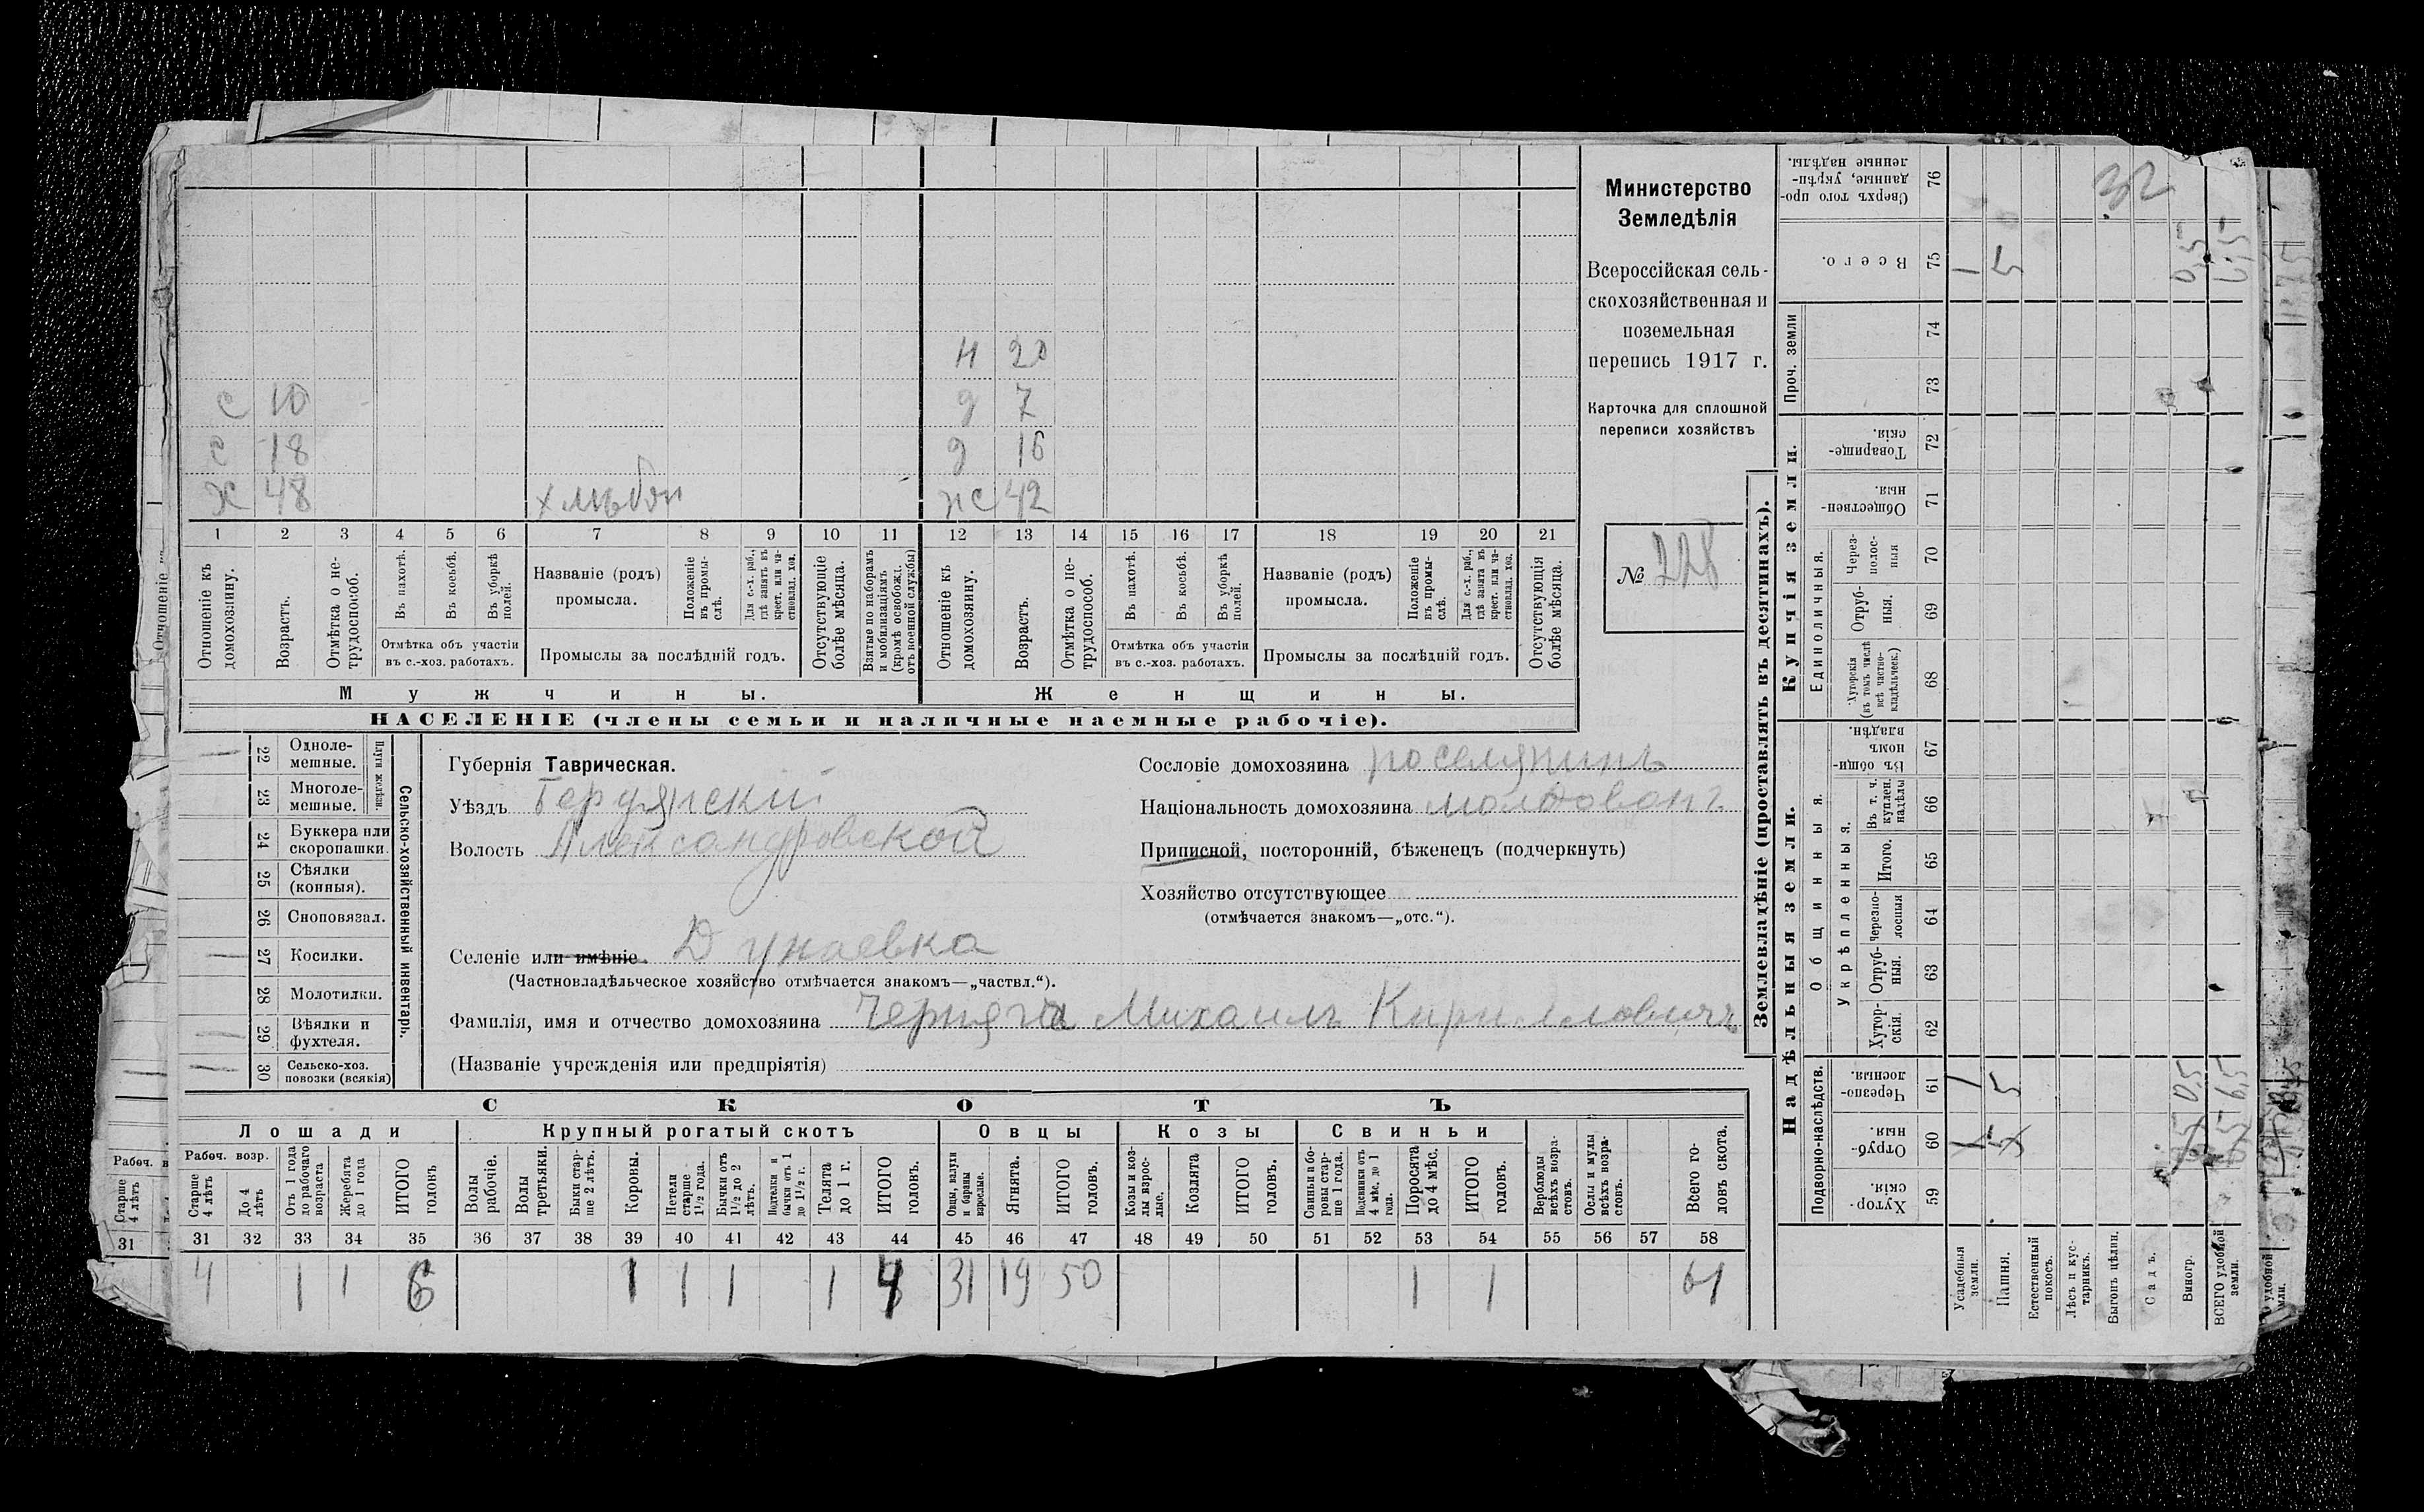 С 10
С 18
Х 48 хлѣбоп
Н 20
д 7
д 16
ж 42
1 2 3 4 5 6 7 8 9 10 11 12 13 14 15 16 17 18 19 20 21
Отношеніе къ домохозяину.
Возрастъ.
Отмѣтка о нетрудоспособ.
Въ пахотѣ.
Въ косьбѣ.
Въ уборкѣ полей.
Отмѣтка объ участіи
въ с.-хоз. работахъ.
Названіе (родъ)
промысла.
Положеніе въ промыслѣ.
Для с.-х. раб., гдѣ занятъ въ крест. или частновлад. хоз.
Промыслы за послѣдній годъ.
Отсутствующіе болѣе мѣсяца.
Взятые по наборамъ и мобилизаціямъ (кромѣ освобожд. отъ военной службы)
Отношеніе къ домохозяину.
Возрастъ.
Отмѣтка о нетрудоспособ.
Въ пахотѣ.
Въ косьбѣ.
Въ уборкѣ полей.
Отмѣтка объ участіи
въ с.-хоз. работахъ.
Названіе (родъ)
промысла.
Положеніе въ промыслѣ.
Для с.-х. раб., гдѣ занята въ крест. или частновлад. хоз.
Промыслы за послѣдній годъ.
Отсутствующія болѣе мѣсяца.
Мужчины.
Женщины.
НАСЕЛЕНІЕ (члены семьи и наличные наемные рабочіе).
Министерство
Земледѣлія
Всероссійская сель-
скохозяйственная и
поземельная
перепись 1917 г.
Карточка для сплошной
переписи хозяйствъ
№ 228
22 Одноле-
мешные.
23 Многоле-
мешные.
Плуги желѣзн.
24 Буккера или
скоропашки.
25 Сѣялки
(конныя).
26 Сноповязал.
27 Косилки.
28 Молотилки.
29 Вѣялки и
фухтеля.
30 Сельско-хоз.
повозки (всякія)
Сельско-хозяйственный инвентарь.
Губернія Таврическая.
Уѣздъ Бердянскій
Волость Александровской
Селеніе или имѣніе. Дунаевка
(Частновладѣльческое хозяйство отмѣчается знакомъ—„частвл.“).
Фамилія, имя и отчество домохозяина Черняга Михаилъ Кирилловичъ
(Названіе учрежденія или предпріятія)
Сословіе домохозяина поселянинъ
Національность домохозяина молдованъ
Приписной, посторонній, бѣженецъ (подчеркнуть)
Хозяйство отсутствующее
(отмѣчается знакомъ—„отс.“).
СКОТЪ
Лошади
Крупный рогатый скотъ
Овцы
Козы
Свиньи
Рабоч. возр.
Старше 4 лѣтъ
До 4 лѣтъ
Отъ 1 года до рабочаго возраста
Жеребята до 1 года
ИТОГО головъ
Волы рабочіе.
Волы третьяки.
Быки старше 2 лѣтъ.
Коровы.
Нетели старше 1½ года.
Бычки отъ 1½ до 2 лѣтъ.
Подтелки и бычки отъ 1 до 1½ г.
Телята до 1 г.
ИТОГО головъ.
Овцы, валухи и бараны взрослые.
Ягнята.
ИТОГО головъ.
Козы и козлы взрослые.
Козлята
ИТОГО головъ.
Свиньи и боровы старше 1 года.
Подсвинки отъ 4 мѣс. до 1 года.
Поросята до 4 мѣс.
ИТОГО головъ.
Верблюды всѣхъ возрастовъ.
Ослы и мулы всѣхъ возрастовъ.
Всего головъ скота.
31 32 33 34 35 36 37 38 39 40 41 42 43 44 45 46 47 48 49 50 51 52 53 54 55 56 57 58
4 1 1 6 1 1 1 1 4 31 19 50 1 1 61
Землевладѣніе (проставлять въ десятинахъ).
Купчія земли.
Надѣльныя земли.
Сверхъ того проданные, укрѣпленные надѣлы. 76
32
Всего. 75
1 5 0,5 6,5
Проч. земли
74
73
Товарищескія. 72
Общественныя. 71
Единоличныя.
Черезполосныя 70
Отрубныя. 69
Хуторскія (въ томъ числѣ всѣ частновладѣльческ.) 68
Общинныя.
Въ общинномъ владѣн. 67
Укрѣпленныя.
Въ т. ч. куплен. надѣлы 66
Итого. 65
Черезполосныя 64
Отрубныя. 63
Хуторскія. 62
Подворно-наслѣдств.
Черезполосныя. 61
1 5 0,5 6,5
Отрубныя. 60
Хуторскія. 59
Усадебныя земли.
Пашня.
Естественный покосъ.
Лѣсъ и кустарникъ.
Выгонъ цѣлин.
Садъ.
Виногр.
ВСЕГО удобной земли.
Отношеніе
Рабоч. в
Старше
4 лѣтъ
31
удобной
мли.